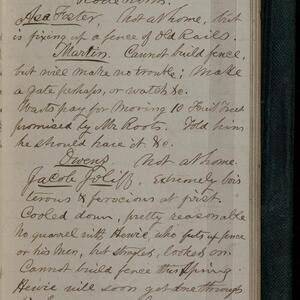 Asa Foster, Not at home, but
is fixing up a fence of Old Rails.
Martin. Cannot build fence,
but will make no trouble; Make
a gate perhaps, or watch &c.
Wants pay for Moving 10 Fruit Trees
promised by Mr Roots. Told him
he should have it &c.
Owens. Not at home.
Jacob Joliff. Extremely bois
terous & ferocious at first.
Cooled down, pretty reasonable
No quarrel with Hewie, who puts up fence
or his Men, but looked on.
Cannot build fence this Spring.
Hewie will soon get done through